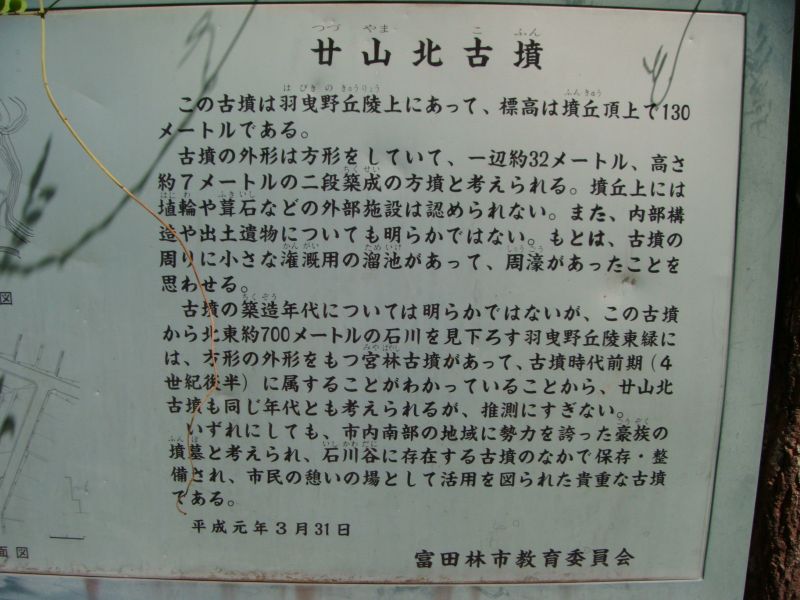 廿山北古墳
この古墳は羽曳野丘陵上にあって、標高は墳丘頂上で130
メートルである。
古墳の外形は方形をしていて、一辺約32メートル、高さ
約7メートルの二段築成の方墳と考えられる。墳丘上には
埴輪や葺石などの外部施設は認められない。また、内部構
造や出土遺物についても明らかではない。もとは、古墳の
周りに小さな潅漑用の溜池があって、周濠があったことを
思わせる。
古墳の築造年代については明らかではないが、この古墳
から北東約700メートルの石川を見下ろす羽曳野丘陵東縁に
は、方形の外形をもつ宮林古墳があって、古墳時代前期(4
世紀後半)に属することがわかっていることから、廿山北
古墳も同じ年代とも考えられるが、推測にすぎない。
いずれにしても、市内南部の地域に勢力を誇った豪族の
墳墓と考えられ、石川谷に存在する古墳のなかで保存・整
備され、市民の憩いの場として活用を図られた貴重な古墳
である。
平成元年3月31日
富田林市教育委員会
図
面図